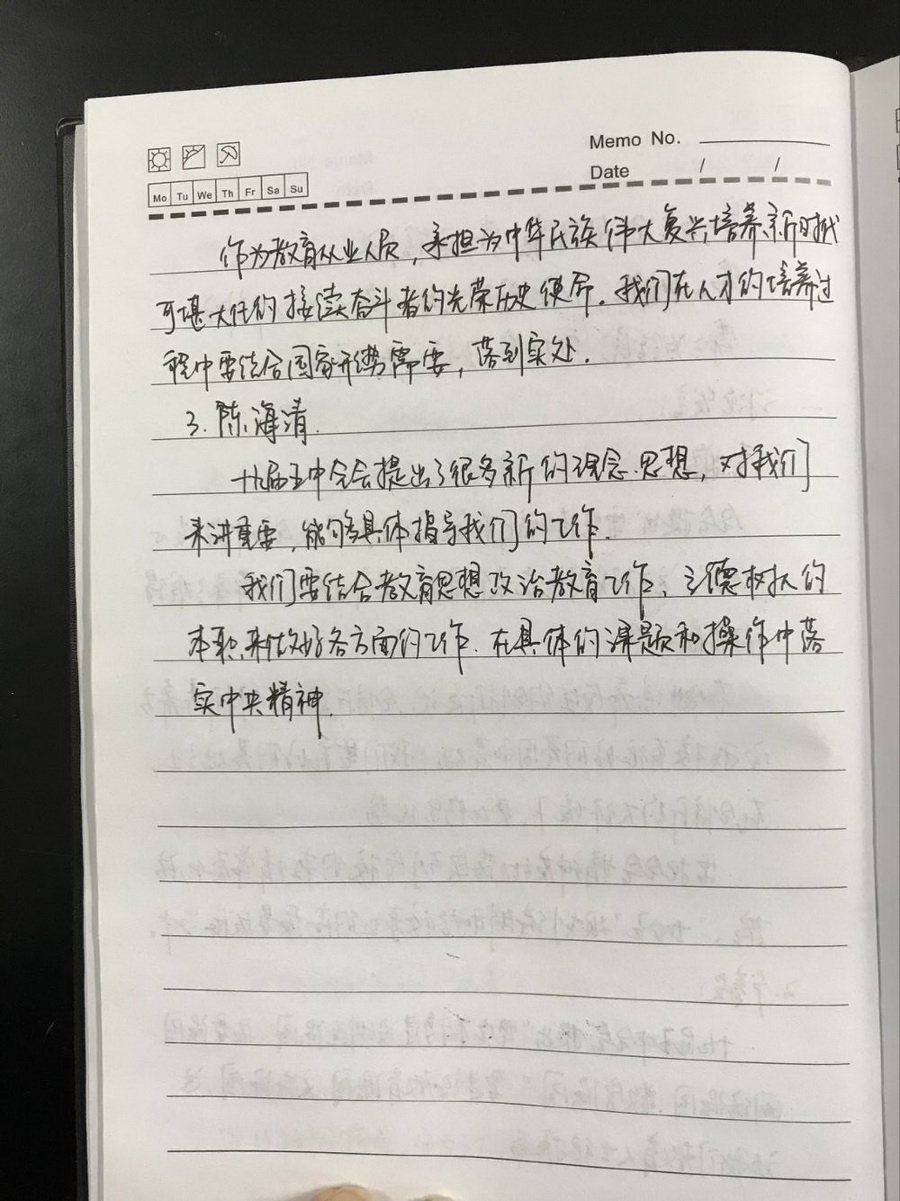 Memo No.
Date / /
Mo Tu We Th Fr Sa Su
作为教育从业人员，承担为中华民族伟大复兴培养新时代
可堪大任的接续奋斗者的光荣历史使命。我们在人才的培养过
程中要结合国家形势需要，落到实处。
3. 陈海清.
十九届五中全会提出了很多新的理念.思想，对我们
来讲重要，能够具体指导我们的工作.
我们要结合教育思想政治教育工作、立德树人的
本职来做好各方面的工作.在具体的课题和操作中落
实中央精神.